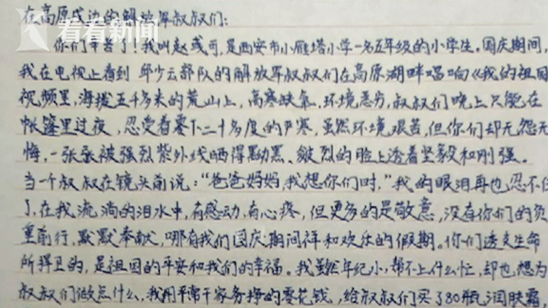 看看新闻
在高原戍边的解放军叔叔们:
你们辛苦了!我叫赵彧可,是西安市小雁塔小学一名五年级的小学生。国庆期间,
我在电视上看到邱少云部队的解放军叔叔们在高原湖畔唱响《我的祖国
视频里,海拔五千多米的荒山上,高寒缺氧,环境恶劣,叔叔们晚上只能在
帐篷里过夜,忍受着零下二十多度的严寒,虽然环境艰苦,但你们却无怨无
悔,一张张被强烈紫外线晒得黝黑、皴烈的脸上透着坚毅和刚强。
当一个叔叔在镜头前说:“爸爸妈妈,我想你们时,”我的眼泪再也忍不住
了,在我流淌的泪水中,有感动,有心疼,但更多的是敬意,没有你们的负
重前行,默默奉献,哪有我们国庆期间祥和欢乐的假期,你们透支生命
所捍卫的,是祖国的平安和我们的幸福。我虽然年纪小,帮不上什么忙,却也想为
叔叔们做点什么,我用平常干家务挣的零花钱,给叔叔们买了80瓶润肤霜